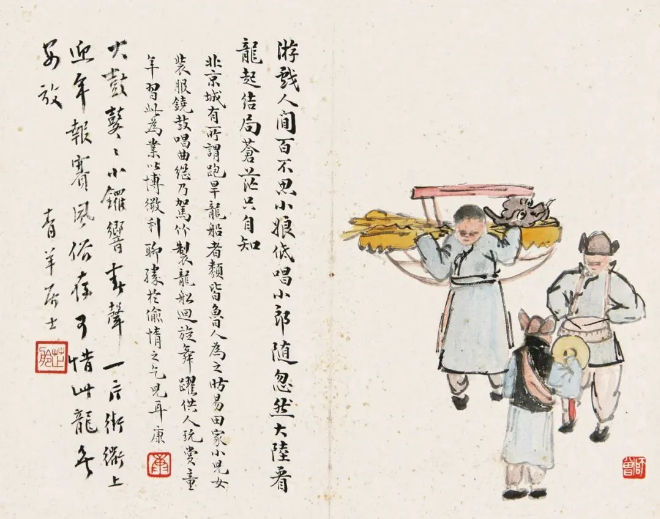 游戲人間百不思小娘低唱小郎隨忽然大陸看
龍起結局蒼茫只自知
北京城有所謂跑旱龍船者類皆魯人為之昉易田家小兒女
裝服鐃鼓唱曲繼乃駕竹製龍船迴旋舞躍供人玩賞童
年習此為業以博微利聊勝於偷惰之乞兒耳 康
康
大鼓鼕〻小鑼響春聲一片街衢上
迎年報賽風俗存可惜此龍無
安放
青羊居士
師曾